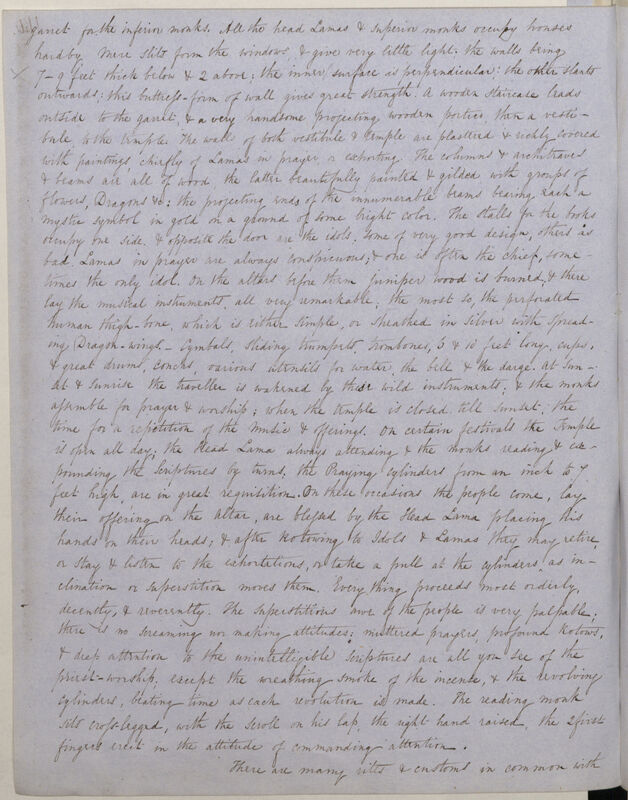 garret for the inferior monks. All the head Lamas & superior monks occupy houses
hard by. Mere slits form the windows & give very little light: the walls being
7-9 feet thick below & 2 above; the inner surface is perpendicular: the other slants
outwards; this buttress-form of wall gives great strength. A wooden staircase leads
outside to the garret, & a very handsome projecting wooden portico, then a vesti-
bule, to the temple. The walls of both vestibule & temple are plastered & richly covered
with paintings, chiefly of Lamas in prayer, or exhorting. The columns & architraves
& beams are all of wood, the latter beautifully painted & gilded with groups of
flowers, Dragons &c; the projecting ends of the innumerable beams bearing each a
mystic symbol in gold on a ground of some bright color. The stalls for the books
occupy one side, & opposite the door are the idols, some of very good design, others as
bad. Lamas in prayer are always conspicuous; & one is often the chief, some-
times the only idol. On the altars before them juniper wood is burned, & there
lay the musical instruments, all very remarkable, the most so, the perforated
human thigh-bone, which is either simple, or sheathed in silver with spread-
ing Dragon-wings - Cymbals, sliding trumpets, trombones, 5 & 10 feet long, cups,
& great drums, conchs, various utensils for water, the bell & the darge. At sun-
set & sunrise the traveller is wakened by their wild instruments, & the monks
assemble for prayer & worship; when the temple is closed till sunset, the
time for a repetition of the music & offerings. On certain festivals the temple
is open all day, the Head Lama always attending & the monks reading & ex-
pounding the scriptures by turns, the Praying cylinders from an inch to 7
feet high, are in great requisition. On these occasions the people come, lay
their offering on the altar, are blessed by the Head Lama placing his
hands on their heads; & after Kotowing to Idols & Lamas they may retire,
or stay & listen to the exhortations, or take a pull at the cylinders, as in-
clination or superstition moves them. Every thing proceeds most orderly,
decently, & reverently. The superstitious awe of the people is very palpable;
there is no screaming nor making attitudes; muttered prayers, profound Kotows,
& deep attention to the unintelligible scriptures are all you see of the
priest-worship, except the wreathing smoke of the incense, & the revolving
cylinders, beating time as each revolution is made. The reading monk
sits cross-legged, with the scroll on his lap, the right hand raised, the 2 first
fingers erect in the attitude of commanding attention.
There are many rites & customs in common with